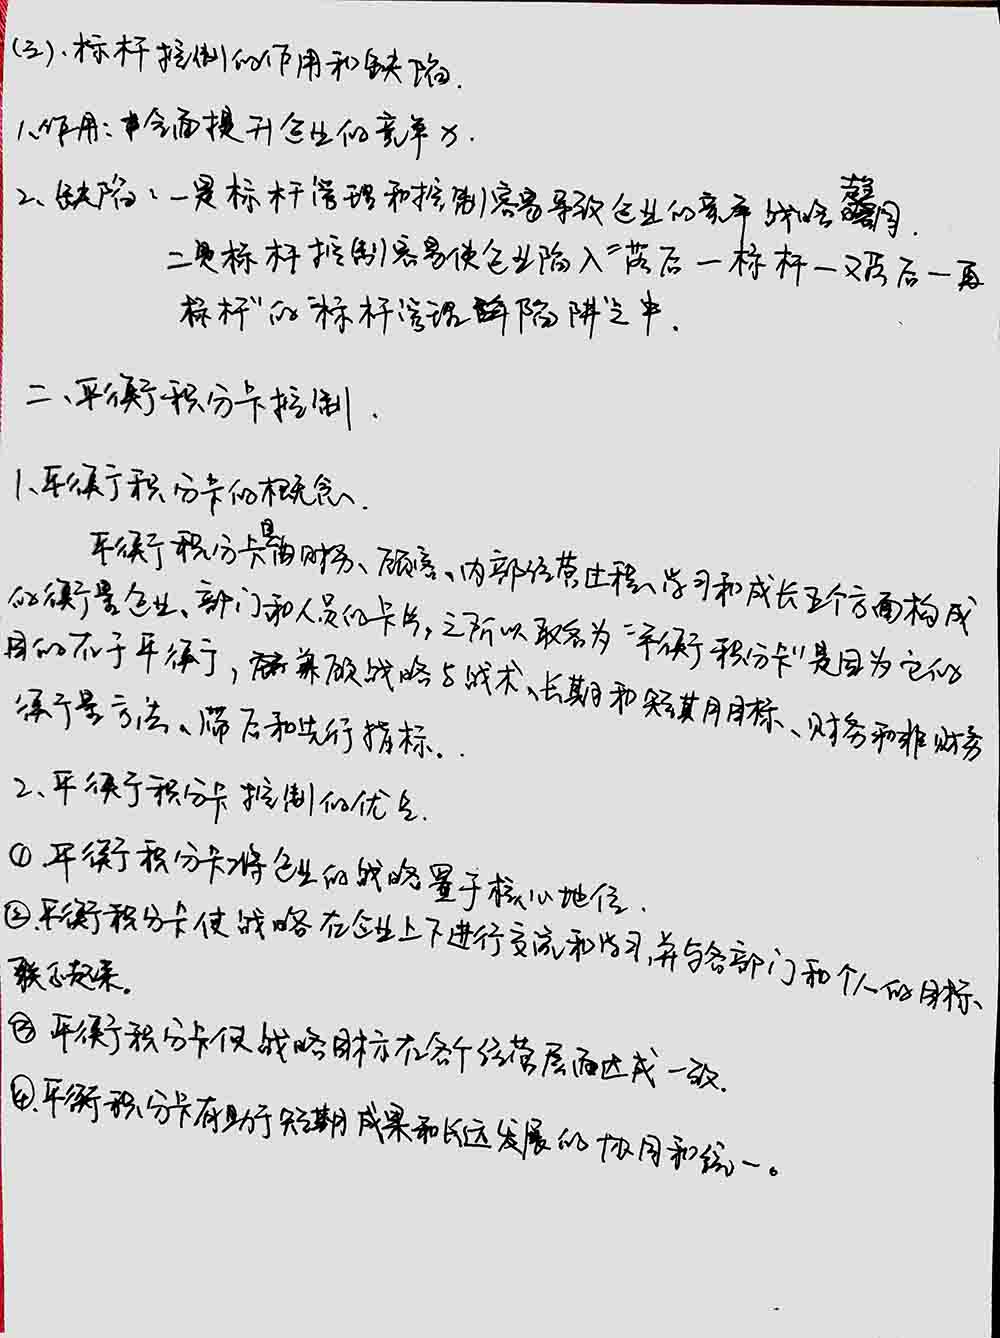 (三)、标杆控制的作用和缺陷.
1、作用:全面提升企业的竞争力.
2、缺陷:一是标杆管理和控制容易导致企业的竞争战略趋同.
二是标杆控制容易使企业陷入“落后—标杆—又落后—再
标杆”的“标杆管理陷阱”之中.
二、平衡积分卡控制.
1、平衡积分卡的概念.
平衡积分卡是由财务、顾客、内部经营过程、学习和成长五个方面构成
的衡量企业、部门和人员的卡片,之所以取名为“平衡积分卡”是因为它的
目的在于平衡,兼顾战略与战术、长期和短期目标、财务和非财务
衡量方法、滞后和先行指标.
2、平衡积分卡控制的优点.
①.平衡积分卡将企业的战略置于核心地位.
②.平衡积分卡使战略在企业上下进行交流和学习,并与各部门和个人的目标
联系起来。
③ 平衡积分卡使战略目标在各个经营层面达成一致.
④.平衡积分卡有助于短期成果和长远发展的协同和统一。